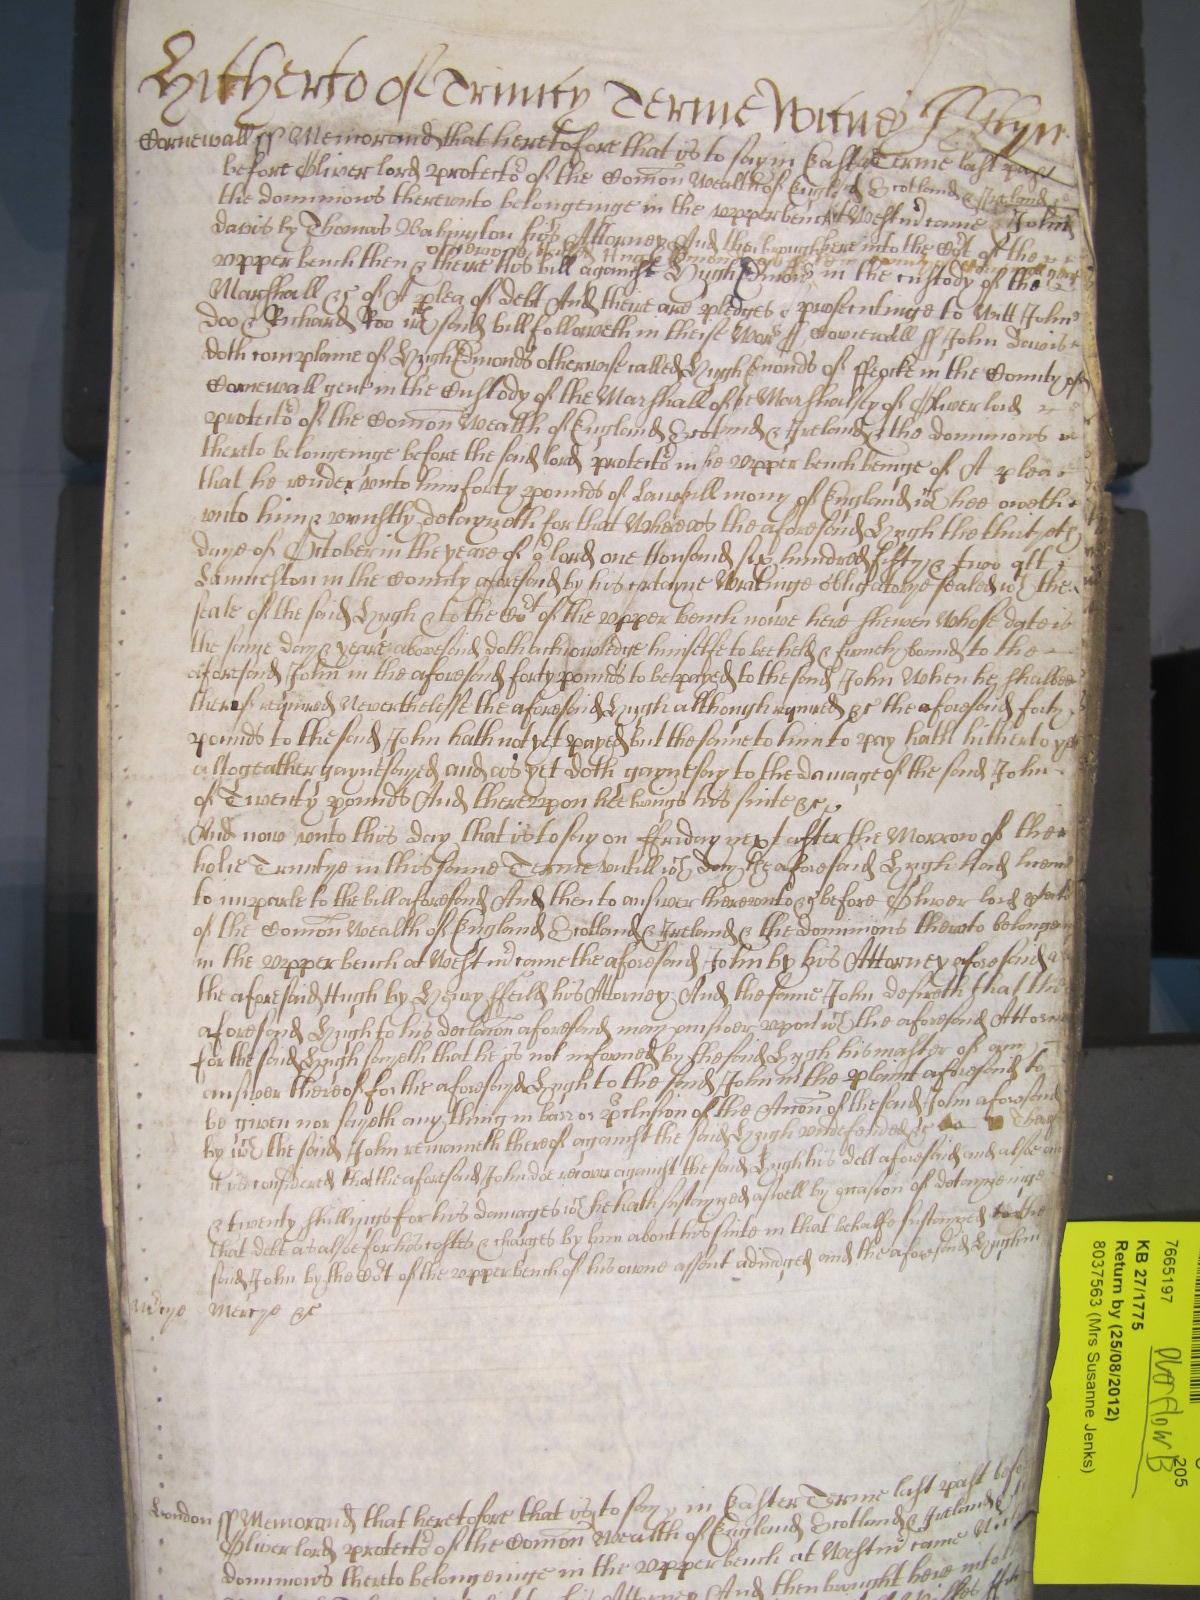 Hitherto of Trinity Terme Witnes
Cornewall ss Memorand that heretofore that is to say in Easter Terme last past
before Oliver lord protecto of the Comon Wealth of England Scotland & Ireland &
the dominions thereunto belongeinge in the upper bench at Westmr came John
Davis by Thomas Babington his Attorney And then brought here into the Cort of the
otherwise called Hugh Edmonds
upper bench then & there his bill against Hugh Edmonds in the custody of the
Marshall &c of A plea of debt And there are pledges of prosecutinge to Witt John
Doo & Richard Roo wch said bill followeth in theise Words ss Cornewall ss John Davis
doth complaine of Hugh Edmonds otherwise called Hugh Emonds of in the County of
Cornewall gent in the Custody of the Marshall of the Marshalsey of Oliver lord
protecto of the Comon Wealth of England Scotland & Ireland & the dominions
thereto belongeinge before the said lord protecto in the upper bench beinge of A plea
that he render unto him forty pounds of lawfull mony of England wch hee oweth
unto him & uniustly detayneth for that Whereas the aforesaid Hugh the thirtyeth
daye of October in the yeare of or lord one thousand six hundred fifty & two att
Launceston in the County aforesaid by his certayne Writinge obligatorye sealed wth the
seale of the said Hugh & to the Cort of the upper bench nowe here shewen Whose date is
the same day & yeare abovesaid doth acknowledge himselfe to bee held & firmely bound to the
aforesaid John in the aforesaid forty pounds to be payed to the said John When he shalbee
thereof required Neverthelesse the aforesaid Hugh although required &c the aforesaid forty
pounds to the said John hath not yet payed but the same to him to pay hath hitherto
altogeather gaynesayed and as yet doth gaynesay to the damage of the said John
of Twenty pounds And thereupon hee brings his suite &c
And now unto this day that is to say on Ffriday next after the Morrow of the
holie Trinitye in this same Terme untill wch day the aforesaid Hugh had
to imparle to the bill aforesaid And then to answer thereunto &c before Oliver lord
of the Comon Wealth of England Scotland & Ireland & the dominions thereto
in the upper bench at Westmr came the aforesaid John by his Attorney aforesaid
the aforesaid Hugh by Henry Ffeild his Attorney And the same John desireth that the
aforesaid Hugh to his declaracon aforesaid may answer upon wch the aforesaid
for the said Hugh sayeth that he is not informed by the said Hugh his master of any
answer thereof for the aforesayd Hugh to the said John in the plaint aforesaid to
be given nor sayeth any thing in barr or preclusion of the Accon of the said John aforesaid
by wch the said John remaneth thereof against the said Hugh undefended &c
it is considered that the aforesaid John doe recover against the said Hugh his debt aforesaid and alsoe
& twenty shillings for his damages wch he hath sustayned aswell by occasion of detayneinge
that debt as alsoe for his costes & charges by him about his suite in that behalfe sustayned to the
said John by the Cort of the upper bench of his owne assent adiudged and the aforesaid Hugh in
Mercye Mercye &c
London ss Memorand that heretofore that is to say in Easter Terme last past
Oliver lord protecto of the Comon Wealth of England Scotland & Ireland &
dominions thereto belongeinge in the upper bench at Westmr came
his Attorney And then brought here into
7665197
KB 27/1775
Return by (25/08/2012)
8037563 (Mrs Susanne Jenks)
Overflow B
205